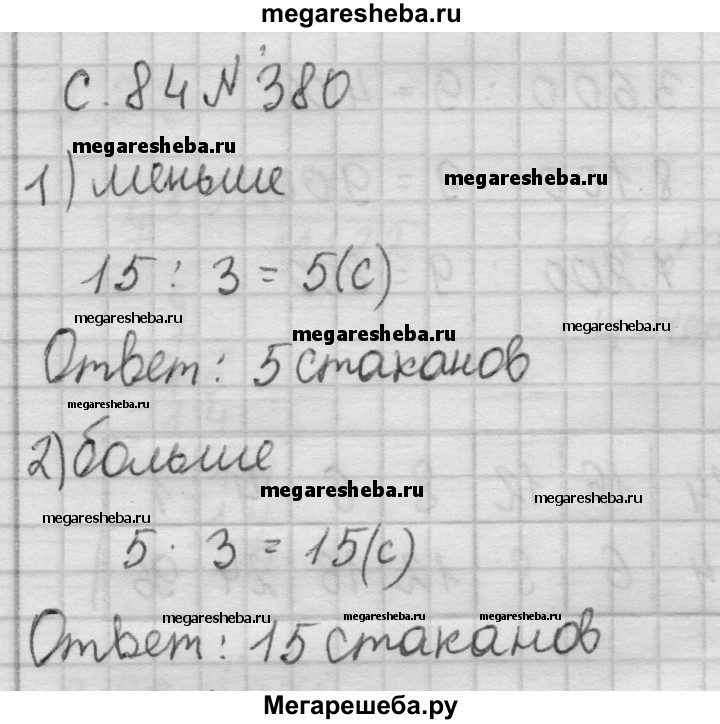 megaresheba.ru
с. 84 № 380
megaresheba.ru
1) меньше
megaresheba.ru
15 : 3 = 5(с)
megaresheba.ru
megaresheba.ru
megaresheba.ru
Ответ: 5 стаканов
megaresheba.ru
2) больше
megaresheba.ru
megaresheba.ru
megaresheba.ru
5 · 3 = 15(с)
megaresheba.ru
megaresheba.ru
megaresheba.ru
Ответ: 15 стаканов
Мегарешеба.ру